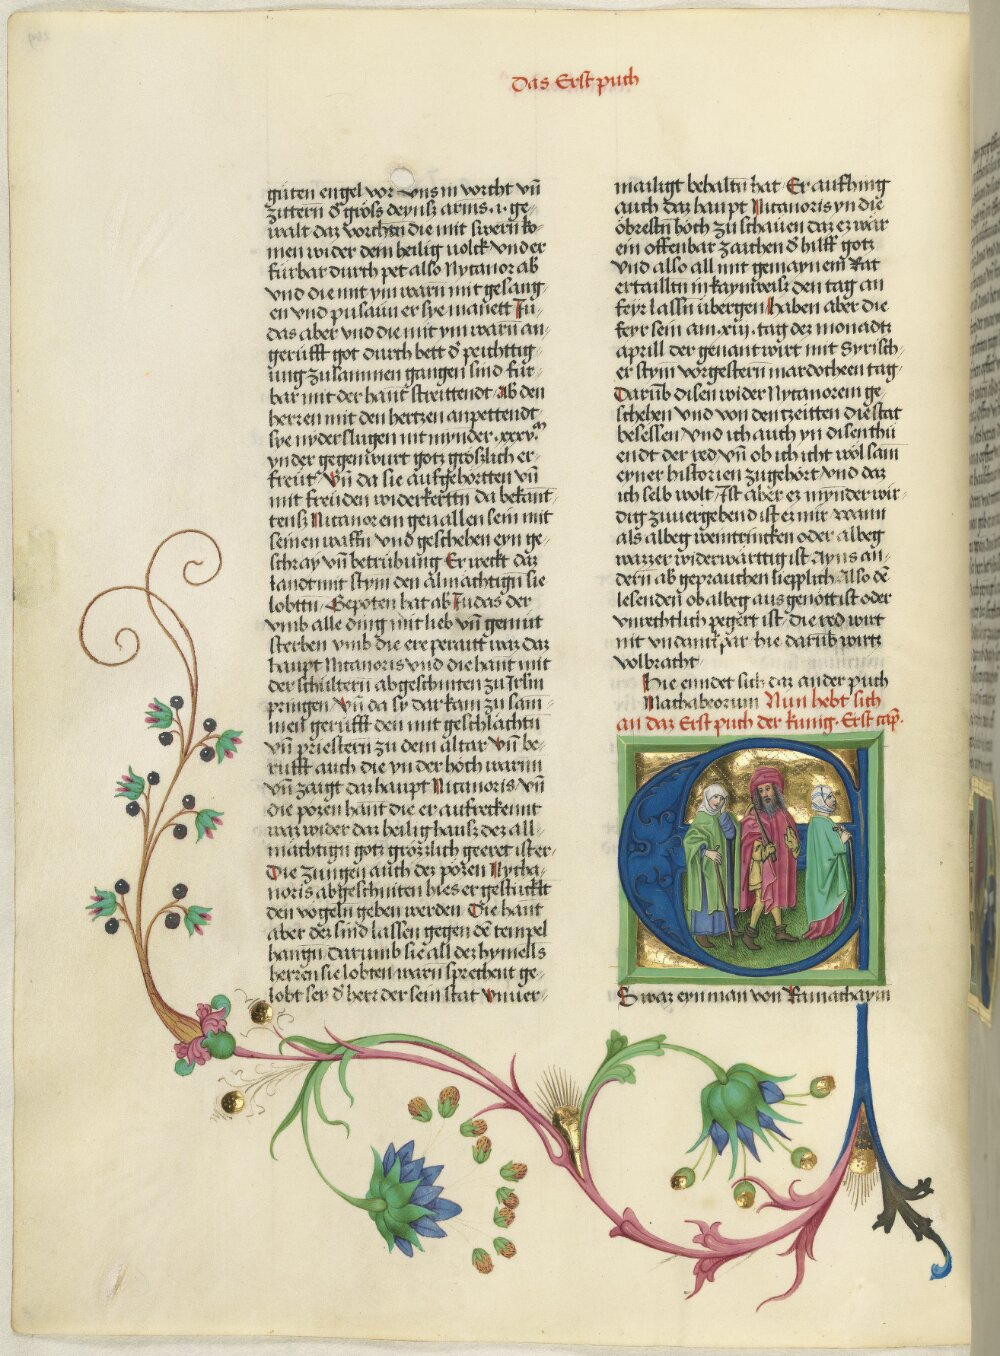 Das Erst puch
gůten engel vor vns in vorcht vn̄
zittern d͛ grōs deynsz arms .i. ge-
walt daz vorchten die mit swern ko-
men wider dem heilig volck Vnd er
fürbar durch pet also Nytanor ab
vnd die mit ym warn mit gesang-
en vnd pusaun er sye manett Ju-
das aber vnd die mit ym warn an-
gerůfft got durch bett d͛ peichttig-
ung zusammen gangen sind für-
bar mit der hant streittendt Ab den
herren mit den hertzen anpettendt
sye nyderslugen nit mynder .xxxv.m
yn der gegenwurt gotz gröszlich er-
freut Vn̄ da sie aufgehörtten vn̄
mit freuden widerkertn̄ da bekant-
tensz Nitanorem geuallen sein mit
seinen waffn̄ vnd geschehen eyn ge-
schray vn̄ betrübung Er weckt daz
landt mit stym den almachtign̄ sie
lobttn̄ Gepoten hat ab Judas der
vmb alle ding mit lieb vn̄ gemüt
sterben vmb die ere peraitt waz daz
haupt Nitanoris vnd die hant mit
der schultern abgeschniten zu Jrlm̄
pringen Vn̄ da sy dar kam zu sam-
men gerüfft den mit geschlächtn̄
vn̄ priestern zu dem altar Vn̄ be-
rüfft auch die yn der höch warnn
Vn̄ zaigt daz haupt Nitanoris Vn̄
die pözen hant die er aufreckennt
waz wider daz heilig hausz dez all-
mächtign̄ gotz gröszlich geeret ist er
Die zungen auch dez pözen Nytha-
noris abgeschniten hies er gestücklt
den vogeln geben werden Die hant
aber dez sind lassen gegen dē tempel
hangn̄ Darumb sie all dez hymells
herren sie lobten warn sprechent ge-
lobt sey d͛ herr der sein stat vnuer-
mailigt behaltn̄ hat Er aufhing
auch daz haupt Nitanoris yn die
öbrestn̄ höch zu schauen daz ez wär
ein offenbar zaichen d͛ hilff gotz
Vnd also all mit gemaynem Rat
ertailltn̄ in kaynweisz den tag an
feyr lassn̄ übergen haben aber die
feyr sein am .xiij. tag dez monadtz
aprill der genant wirt mit Syrisch-
er stym vorgestern mardocheen tag
Darūb disen wider Nytanorem ge-
schehen vnd von den tzeitten die stat
besessen Vnd ich auch yn disen thü
endt der red Vn̄ ob ich icht wol sam
eyner historien zugehört Vnd daz
ich selb wolt Jst aber ez mynder wir-
dig zuuergebend ist ez mir wann
als albeg wein trincken oder albeg
wazzer widerwärttig ist Ayns an-
dern ab geprauchen liepplich Also dē
lesenden ob albeg aus genött ist oder
vnrechtlich pegert ist die red wirt
nit vndanck̄pär hie darūb wirtz
volbracht
Hie enndet sich daz ander puch
Machabeorum Nun hebt sich
an daz Erst puch der kunig. Erst cap̄.
E
S waz eyn man von Ramathaym